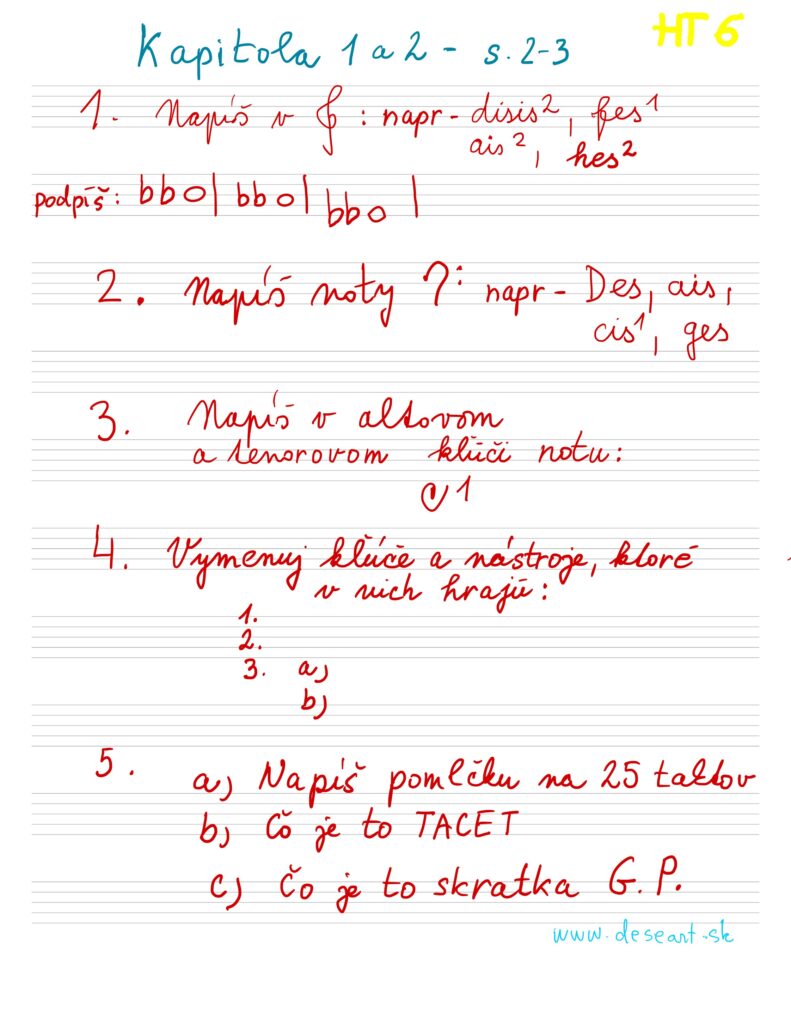 Kapitola 1 a 2 - s. 2-3
HT 6
1. Napíš v 𝄞 : napr - disis², fes¹
ais², hes²
podpíš: bb o| bb o| bb o |
2. Napíš noty 𝄢: napr - Des, ais,
cis¹, ges
3. Napíš v altovom
a tenorovom kľúči notu:
c1
4. Vymenuj kľúče a nástroje, ktoré
v nich hrajú:
1.
2.
3. a)
b)
5. a) Napíš pomlčku na 25 taktov
b) Čo je to TACET
c) Čo je to skratka G. P.
www.deseart.sk